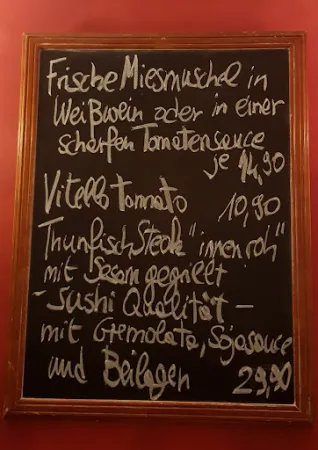 Frische Miesmuschel in
Weißwein oder in einer
scharfen Tomatensauce
je 14,90
Vitello tomato 10,90
Thunfisch Steak "innen roh"
mit Sesam gegrillt
- Sushi Qualität -
mit Gremolata, Sojasauce
und Beilagen 29,90